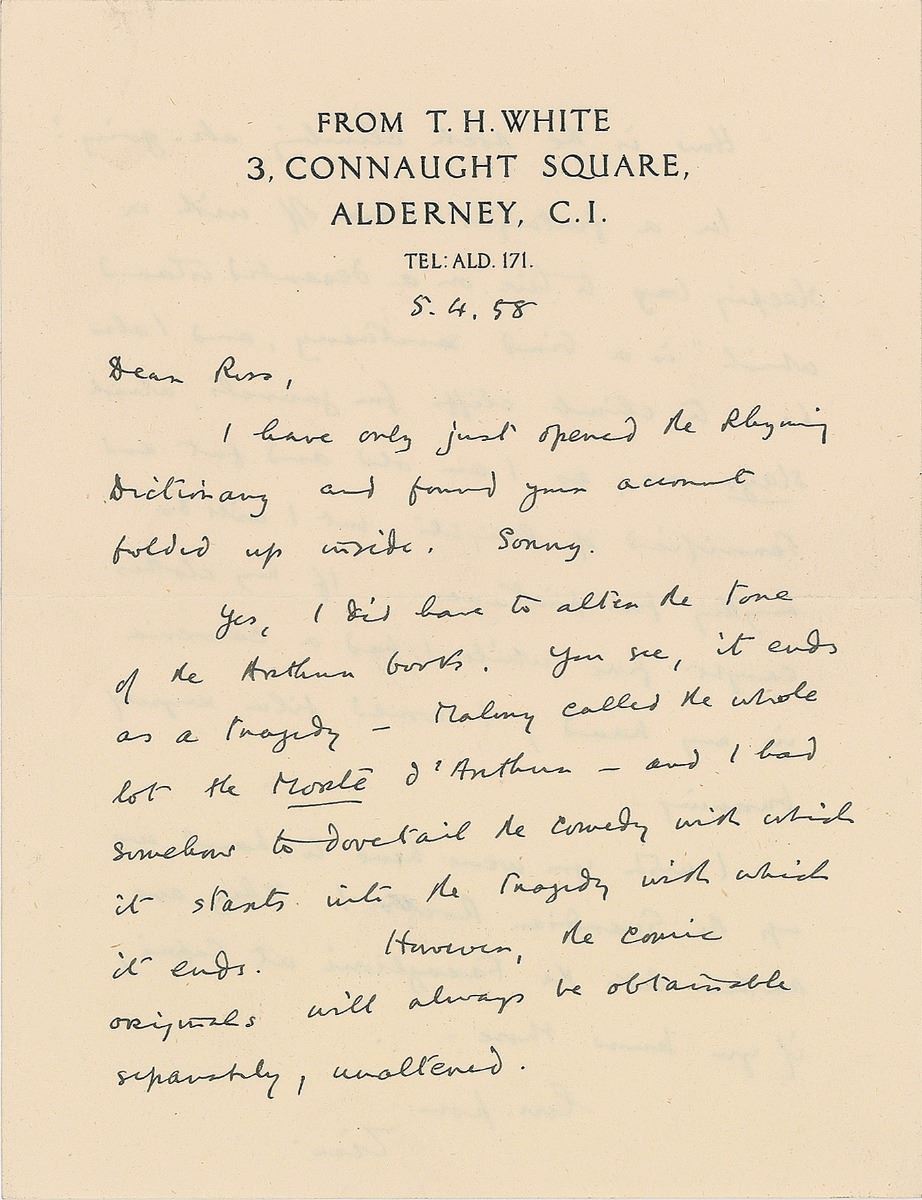 FROM T. H. WHITE
3, CONNAUGHT SQUARE,
ALDERNEY, C.I.
TEL: ALD. 171.
5. 4. 58
Dear Ross,
I have only just opened the Rhyming
Dictionary and found your account
folded up inside. Sorry.
Yes, I did have to alter the tone
of the Arthur books. You see, it ends
as a tragedy – Malory called the whole
lot the Morte d'Arthur – and I had
somehow to dovetail the comedy with which
it starts into the tragedy with which
it ends. However, the comic
originals will always be obtainable
separately, unaltered.